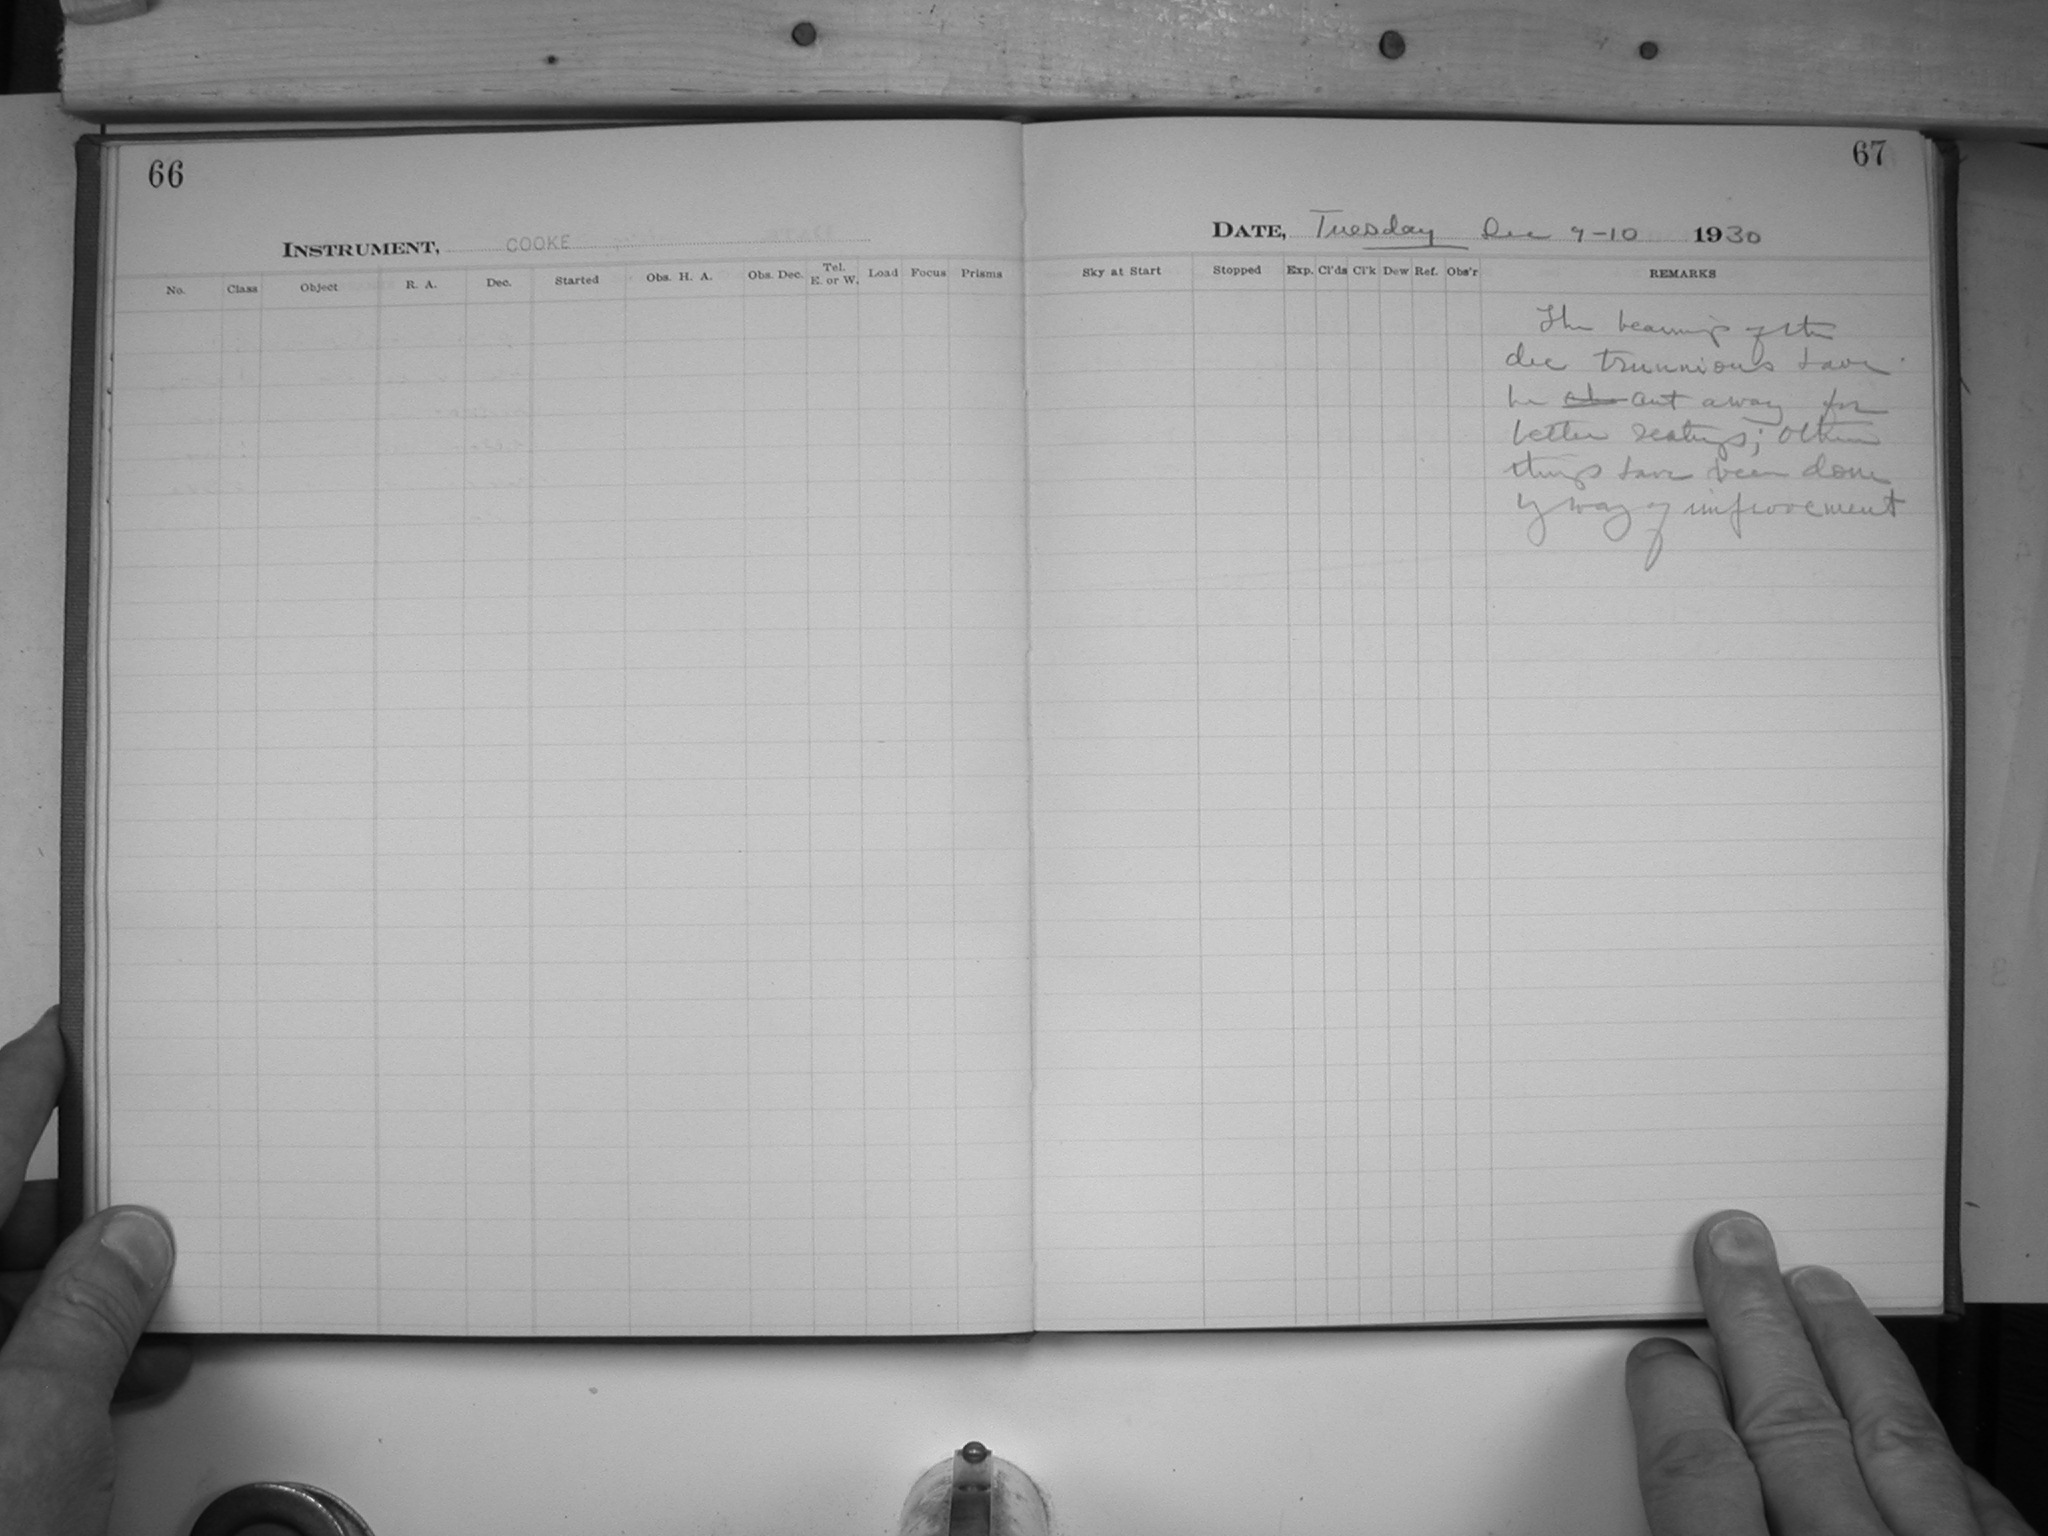 66
INSTRUMENT, COOKE
No. Class Object R. A. Dec. Started Obs. H. A. Obs. Dec. Tel. E. or W. Load Focus Prisms
67
DATE, Tuesday Dec 9-10 1930
Sky at Start Stopped Exp. Cl'ds Cl'k Dew Ref. Obs'r REMARKS
The bearings of the
dec trunnions have
be cut away for
better seatings; other
things have been done
by way of improvement